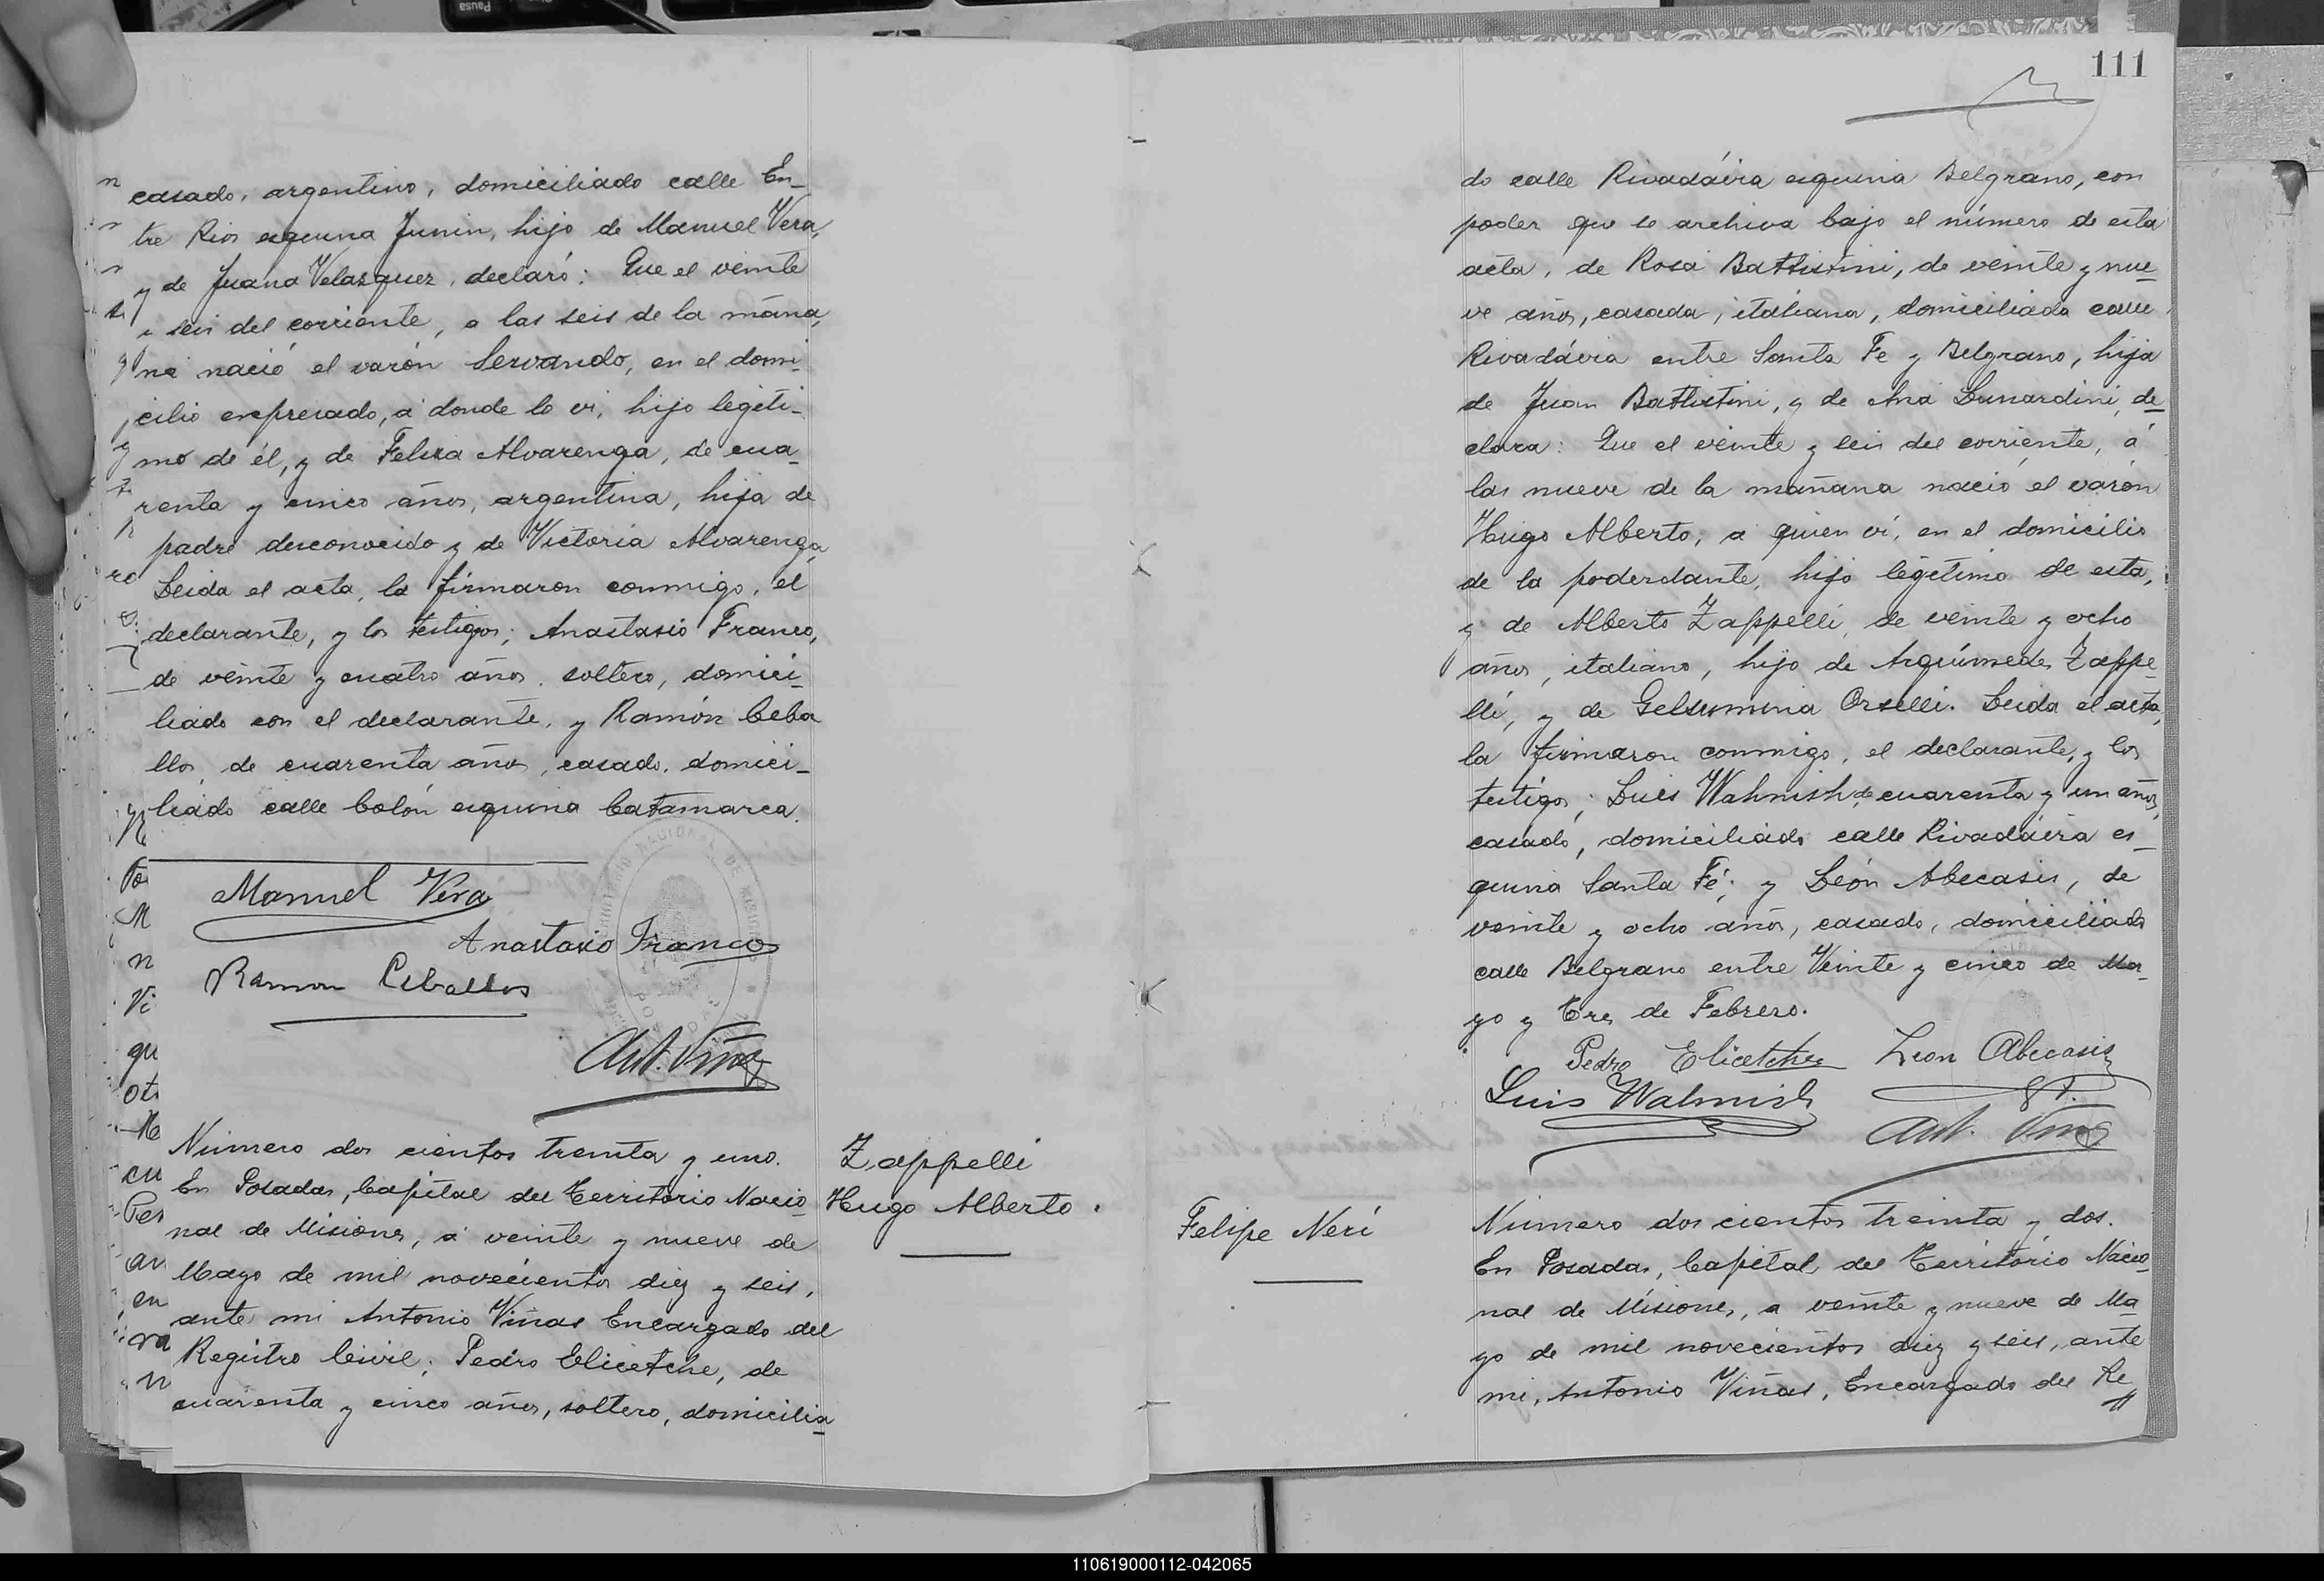 casado, argentino, domiciliado calle En_
tre Rios esquina Junin, hijo de Manuel Vera,
y de Juana Velasquez, declaró: Que el veinte
seis del corriente, a las seis de la maña,
na nació el varón Servando, en el domi_
cilio expresado, á donde lo vi, hijo legíti_
mo de él, y de Felisa Alvarenga, de cua_
renta y cinco años, argentina, hija de
padre desconocido y de Victoria Alvarenga
Leida el acta, la firmaron conmigo, el
declarante, y los testigos; Anastasio Franco,
de veinte y cuatro años, soltero, domici_
liado con el declarante, y Ramón Ceba
llos, de cuarenta años, casado, domici_
liado calle Colón esquina Catamarca.
Manuel Vera
Anastasio Franco
Ramon Ceballos
Ant. Viñas
Número dos cientos treinta y uno.
En Posadas, Capital del Territorio Nacio_
nal de Misiones, á veinte y nueve de
Mayo de mil novecientos diez y seis,
ante mi Antonio Viñas Encargado del
Registro Civil; Pedro Elicetche, de
cuarenta y cinco años, soltero, domicilia_
Zappelli
Hugo Alberto.
111
do calle Rivadávia esquina Belgrano, con
poder que se archiva bajo el número de esta
acta, de Rosa Battistini, de veinte y nue_
ve años, casada, italiana, domiciliada calle
Rivadávia entre Santa Fe y Belgrano, hija
de Juan Battistini, y de Ana Lunardini, de_
clara: Que el veinte y seis del corriente, á
las nueve de la mañana nació el varón
Hugo Alberto, a quien vi, en el domicilio
de la poderdante, hijo legítimo de esta,
y de Alberto Zappelli, de veinte y ocho
años, italiano, hijo de Arquimedes Zappe_
lli, y de Gelsumina Orselli. Leida el acta,
la firmaron conmigo, el declarante, y los
testigos; Luis Wahnish, de cuarenta y un años,
casado, domiciliado calle Rivadávia es_
quina Santa Fé; y León Abecasis, de
veinte y ocho años, casado, domiciliado
calle Belgrano entre Veinte y cinco de Ma_
yo y Tres de Febrero.
Pedro Elicetche Leon Abecasis
Luis Wahnish
Ant. Viñas
Felipe Neri
Número dos cientos treinta y dos.
En Posadas, Capital del Territorio Nacio_
nal de Misiones, a veinte y nueve de Ma_
yo de mil novecientos diez y seis, ante
mi, Antonio Viñas, Encargado del Re
110619000112-042065